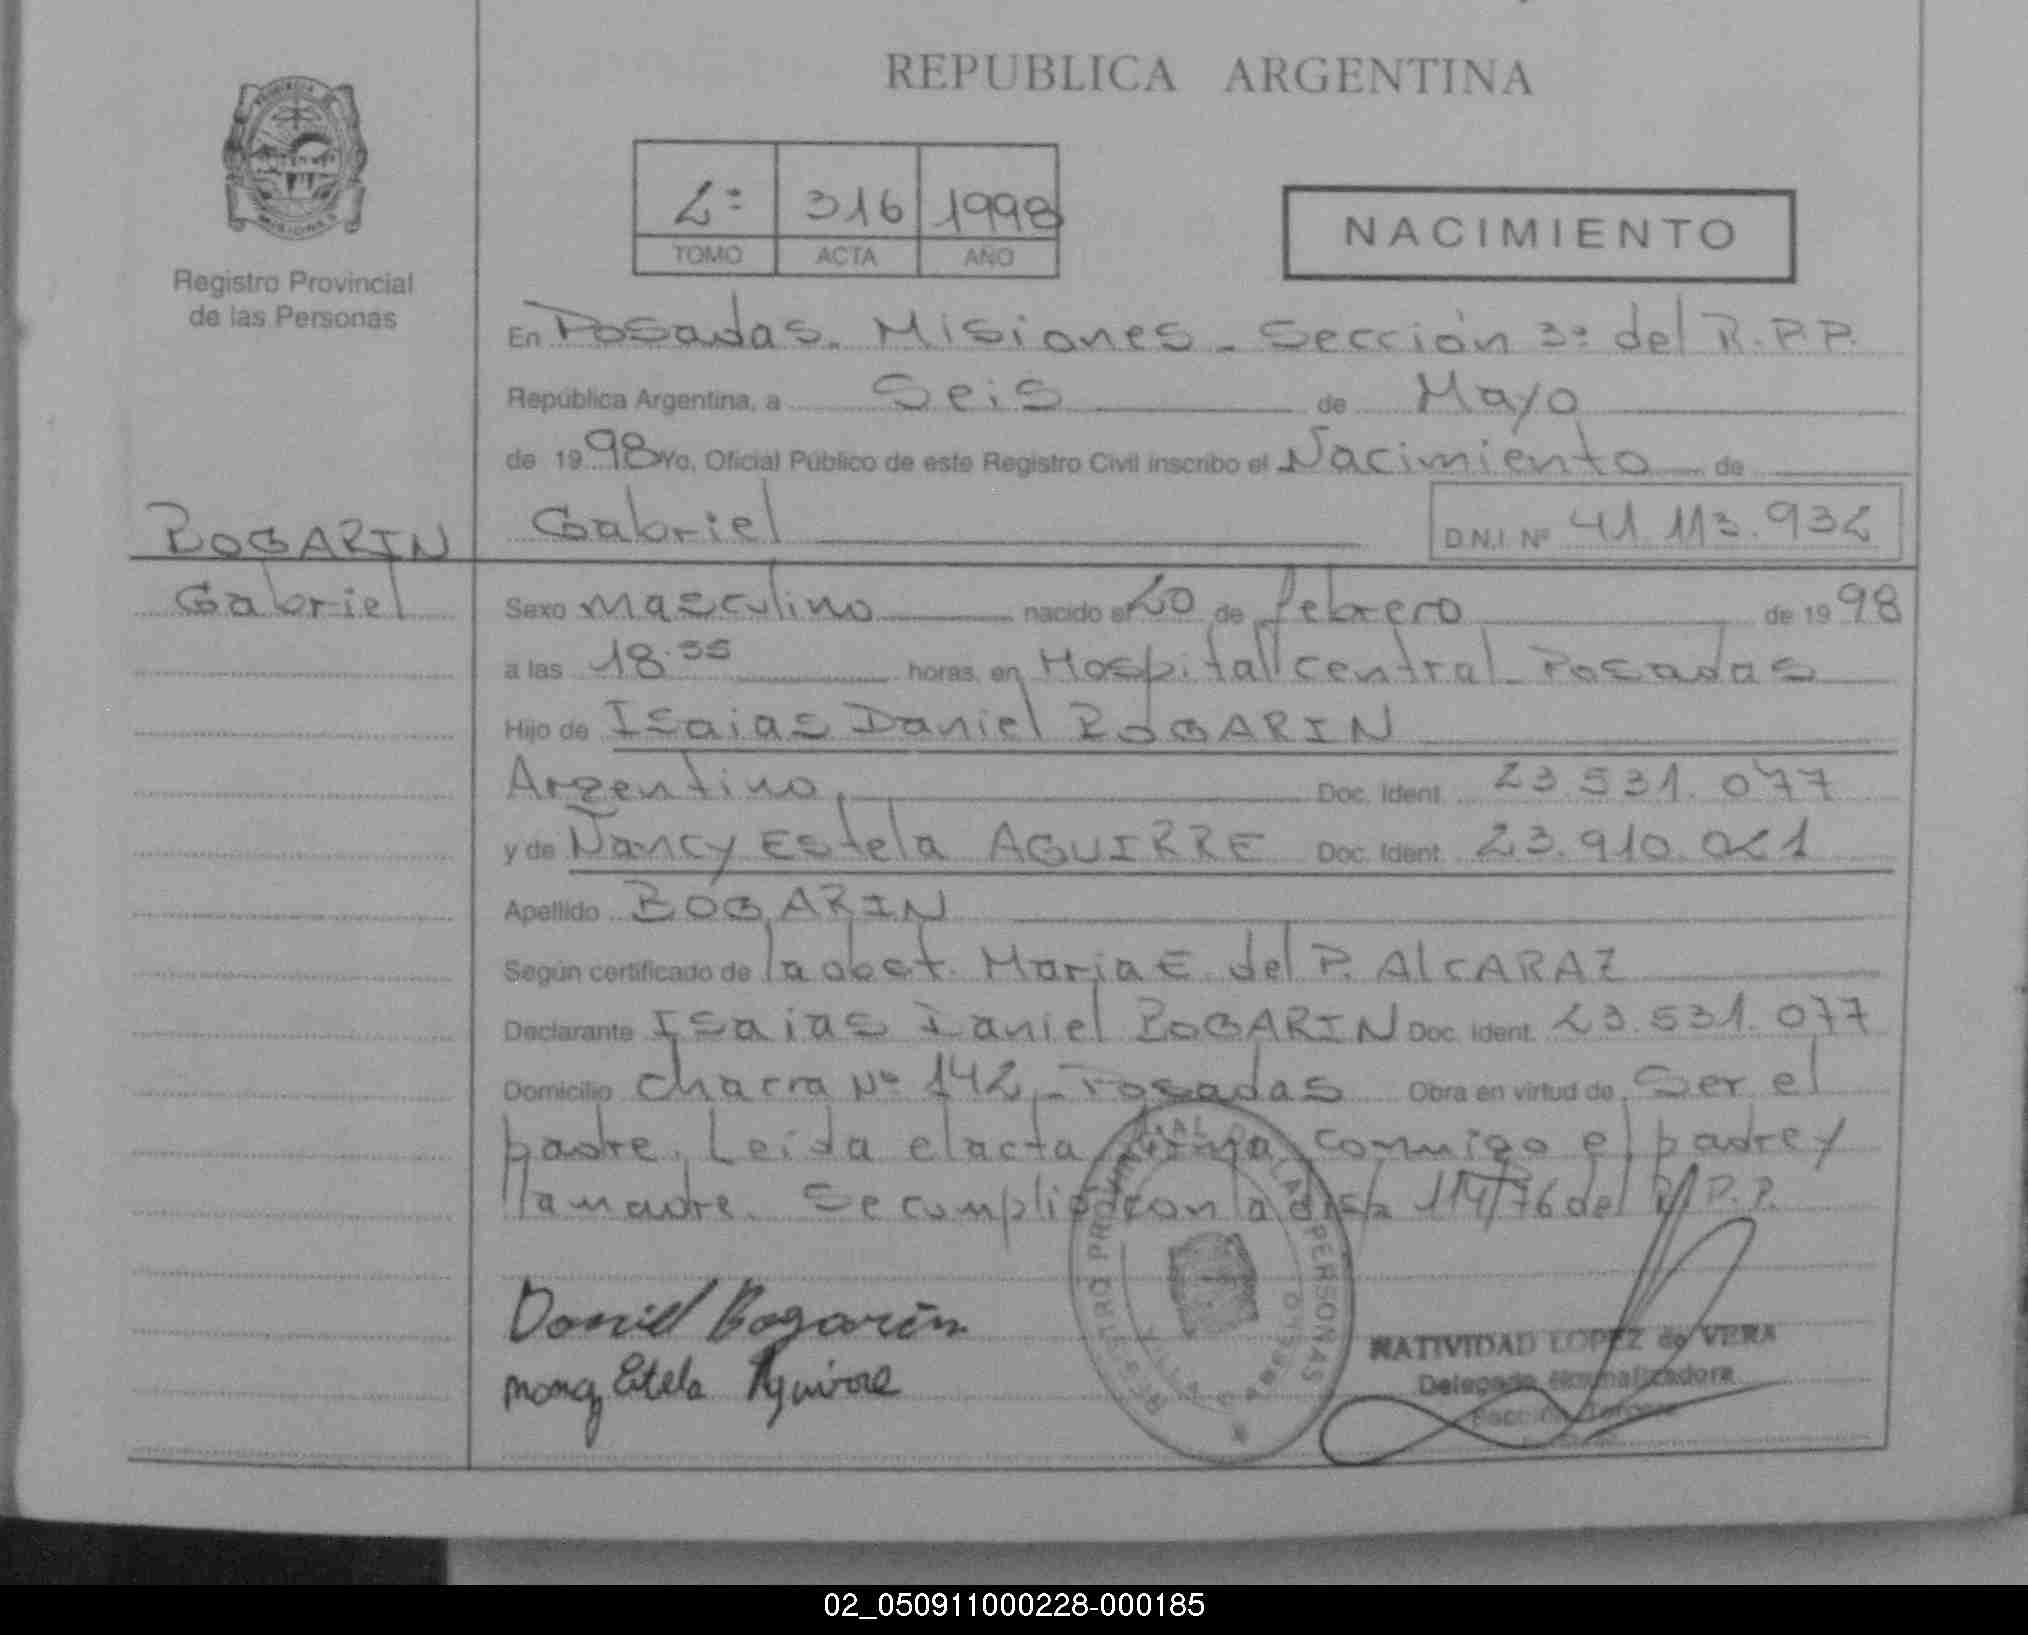 REPUBLICA ARGENTINA
2º 316 1998
TOMO ACTA AÑO
NACIMIENTO
Registro Provincial
de las Personas
En Posadas. Misiones - Sección 3ª del R.P.P.
República Argentina, a Seis de Mayo
de 1998 Yo, Oficial Público de este Registro Civil inscribo el Nacimiento de
BOGARIN Gabriel D.N.I. Nº 41.113.932
Gabriel Sexo masculino nacido el 20 de febrero de 1998
a las 18.35 horas, en Hospital central - Posadas
Hijo de Isaias Daniel BOGARIN
Argentino, Doc. Ident. 23.531.077
y de Nancy Estela AGUIRRE Doc. Ident. 23.910.021
Apellido BOGARIN
Según certificado de la obst. Maria E. del P. ALCARAZ
Declarante Isaias Daniel BOGARIN Doc. Ident. 23.531.077
Domicilio chacra Nº 142 - Posadas Obra en virtud de Ser el
padre. Leida el acta firma conmigo el padre y
la madre. Se cumplió con la 114/76 del R.P.P.
Daniel Bogarin
Estela Aguirre
REGISTRO PROVINCIAL DE LAS PERSONAS
VILLA
NATIVIDAD LOPEZ de VERA
Delegada Normalizadora
Sección Tercera
02_050911000228-000185